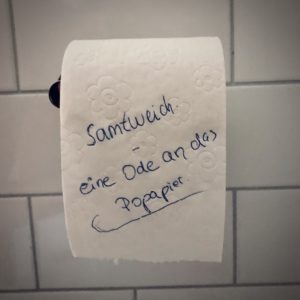 Samtweich
-
eine Ode an das
Popapier.